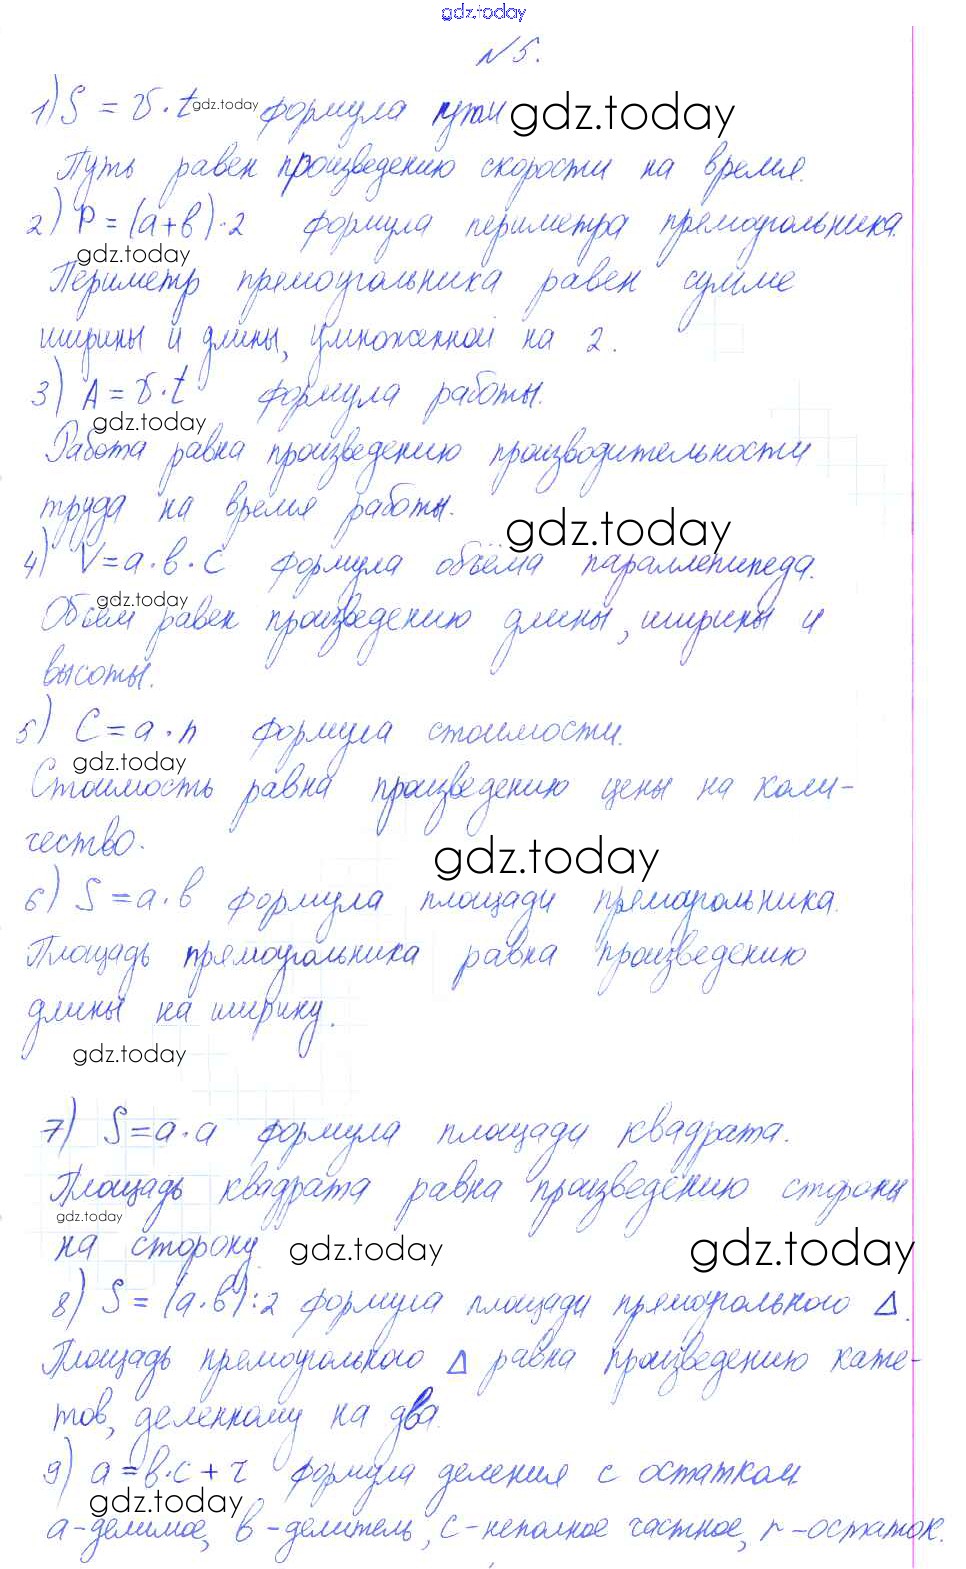 gdz.today
№ 5.
1) S = v · t gdz.today формула пути gdz.today
Путь равен произведению скорости на время.
2) P = (a+b) · 2 формула периметра прямоугольника.
gdz.today
Периметр прямоугольника равен сумме
ширины и длины, умноженной на 2.
3) A = v · t формула работы.
gdz.today
Работа равна произведению производительности
труда на время работы.
gdz.today
4) V = a · b · c формула объёма параллепипеда.
gdz.today
Объём равен произведению длины, ширины и
высоты.
5) C = a · n формула стоимости.
gdz.today
Стоимость равна произведению цены на коли-
чество.
gdz.today
6) S = a · b формула площади прямоугольника.
Площадь прямоугольника равна произведению
длины на ширину.
gdz.today
7) S = a · a формула площади квадрата.
Площадь квадрата равна произведению стороны
gdz.today
на сторону gdz.today gdz.today
8) S = (a · b) : 2 формула площади прямоугольного Δ.
Площадь прямоугольного Δ равна произведению кате-
тов, деленному на два.
9) a = b · c + r формула деления с остатком
gdz.today
a - делимое, b - делитель, c - неполное частное, r - остаток.